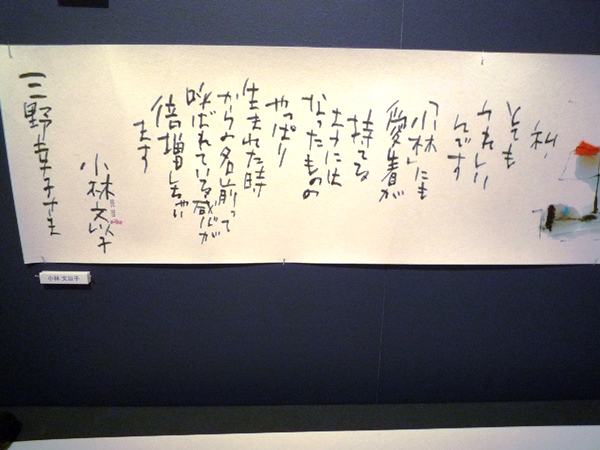 私、
とても
うれしい
んです
「小林」にも
愛着が
持てる
ようには
なったものの
やっぱり
生まれた時
からの名前って
呼ばれている感じが
倍増しちゃい
ます
小林
三野幸子さま
小林